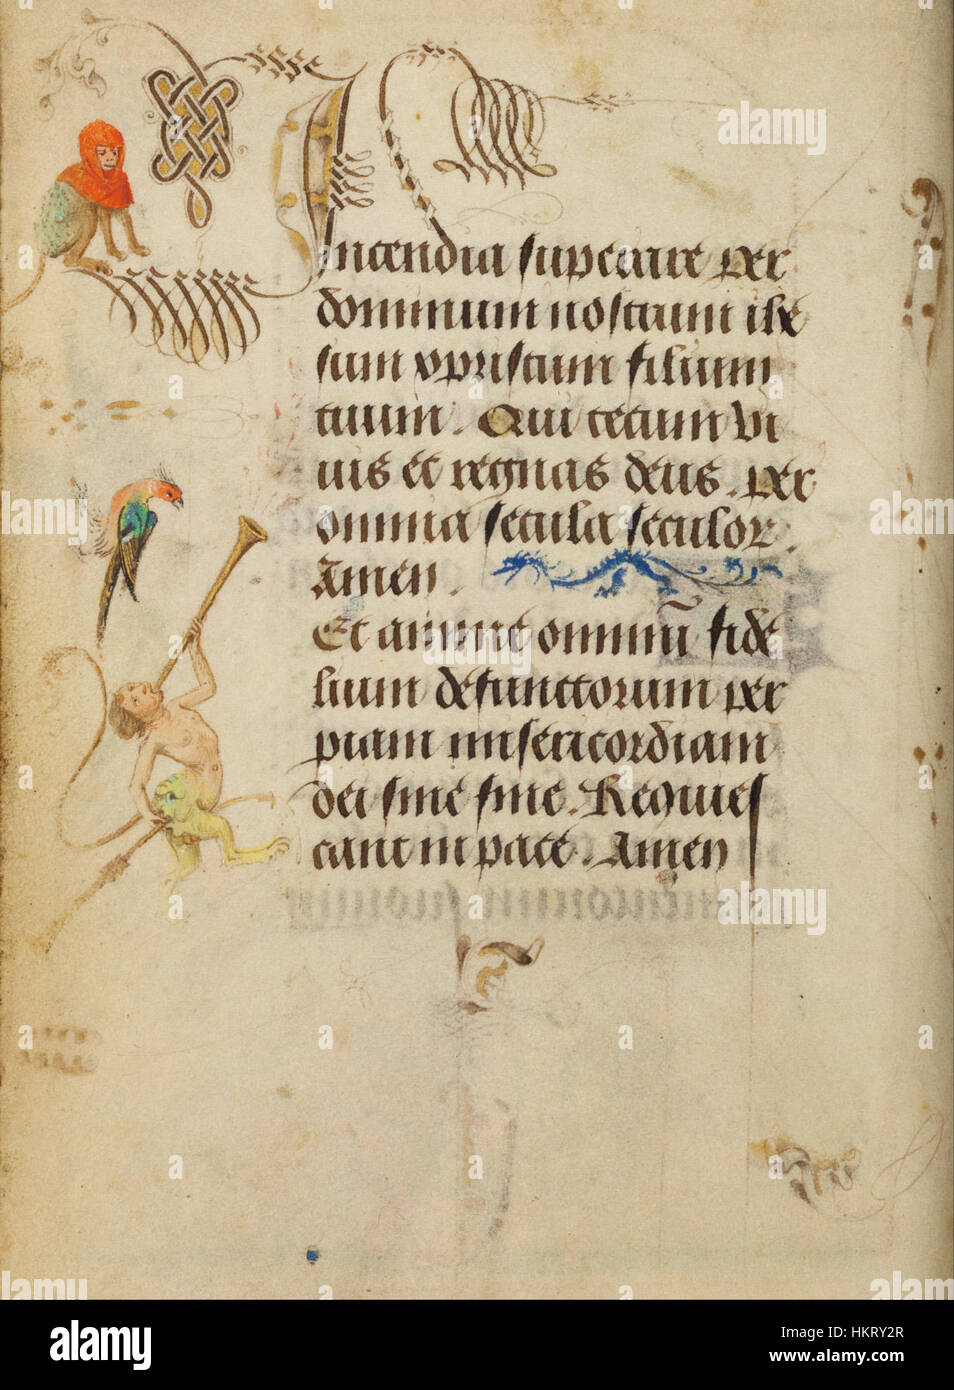 Incendia superare per
dominum nostrum ihe
sum xpristum filium
tuum. Qui tecum vi
uis et regnas deus. per
omnia secula seculor.
Amen.
Et anime omniū fide
lium defunctorum per
piam misericordiam
dei sine fine. Requies
cant in pace. Amen
alamy
alamy
Image ID: HKRY2R
www.alamy.com